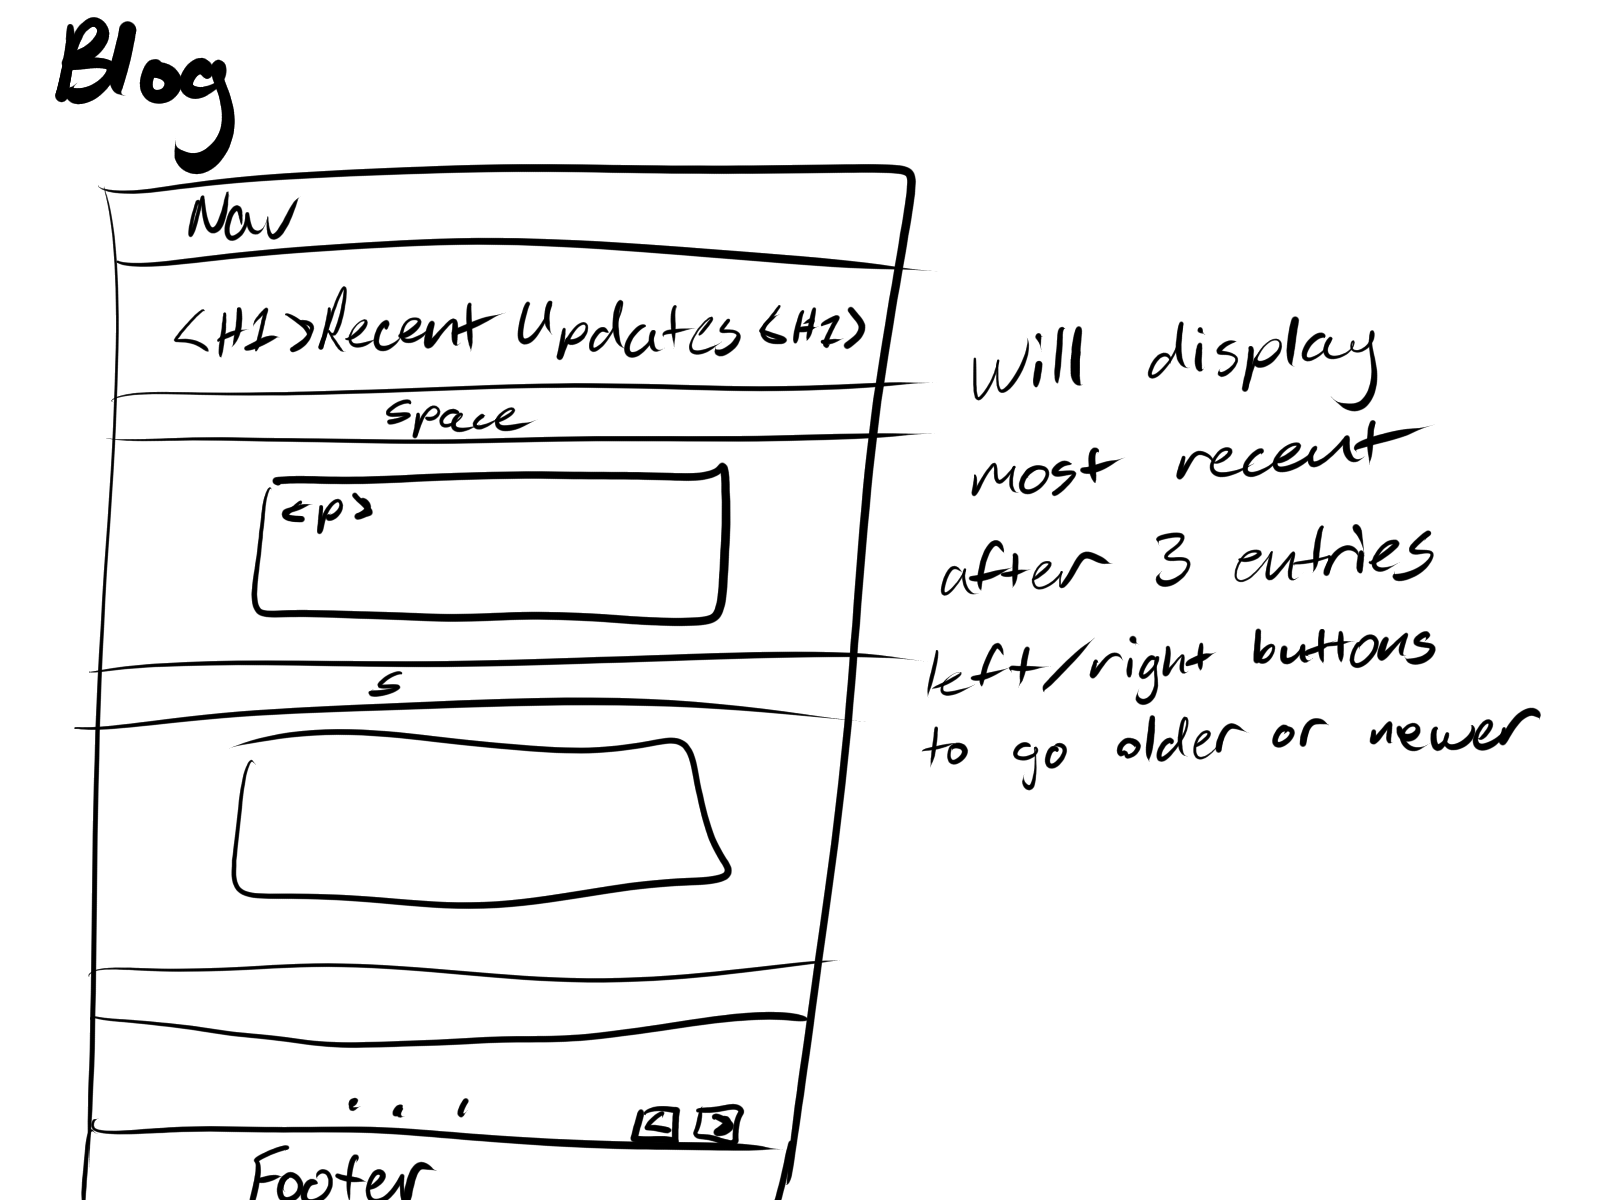 Blog
Nav
<H1>Recent Updates<H1>
space
<p>
s
. . .
< >
Footer
Will display
most recent
after 3 entries
left/right buttons
to go older or newer